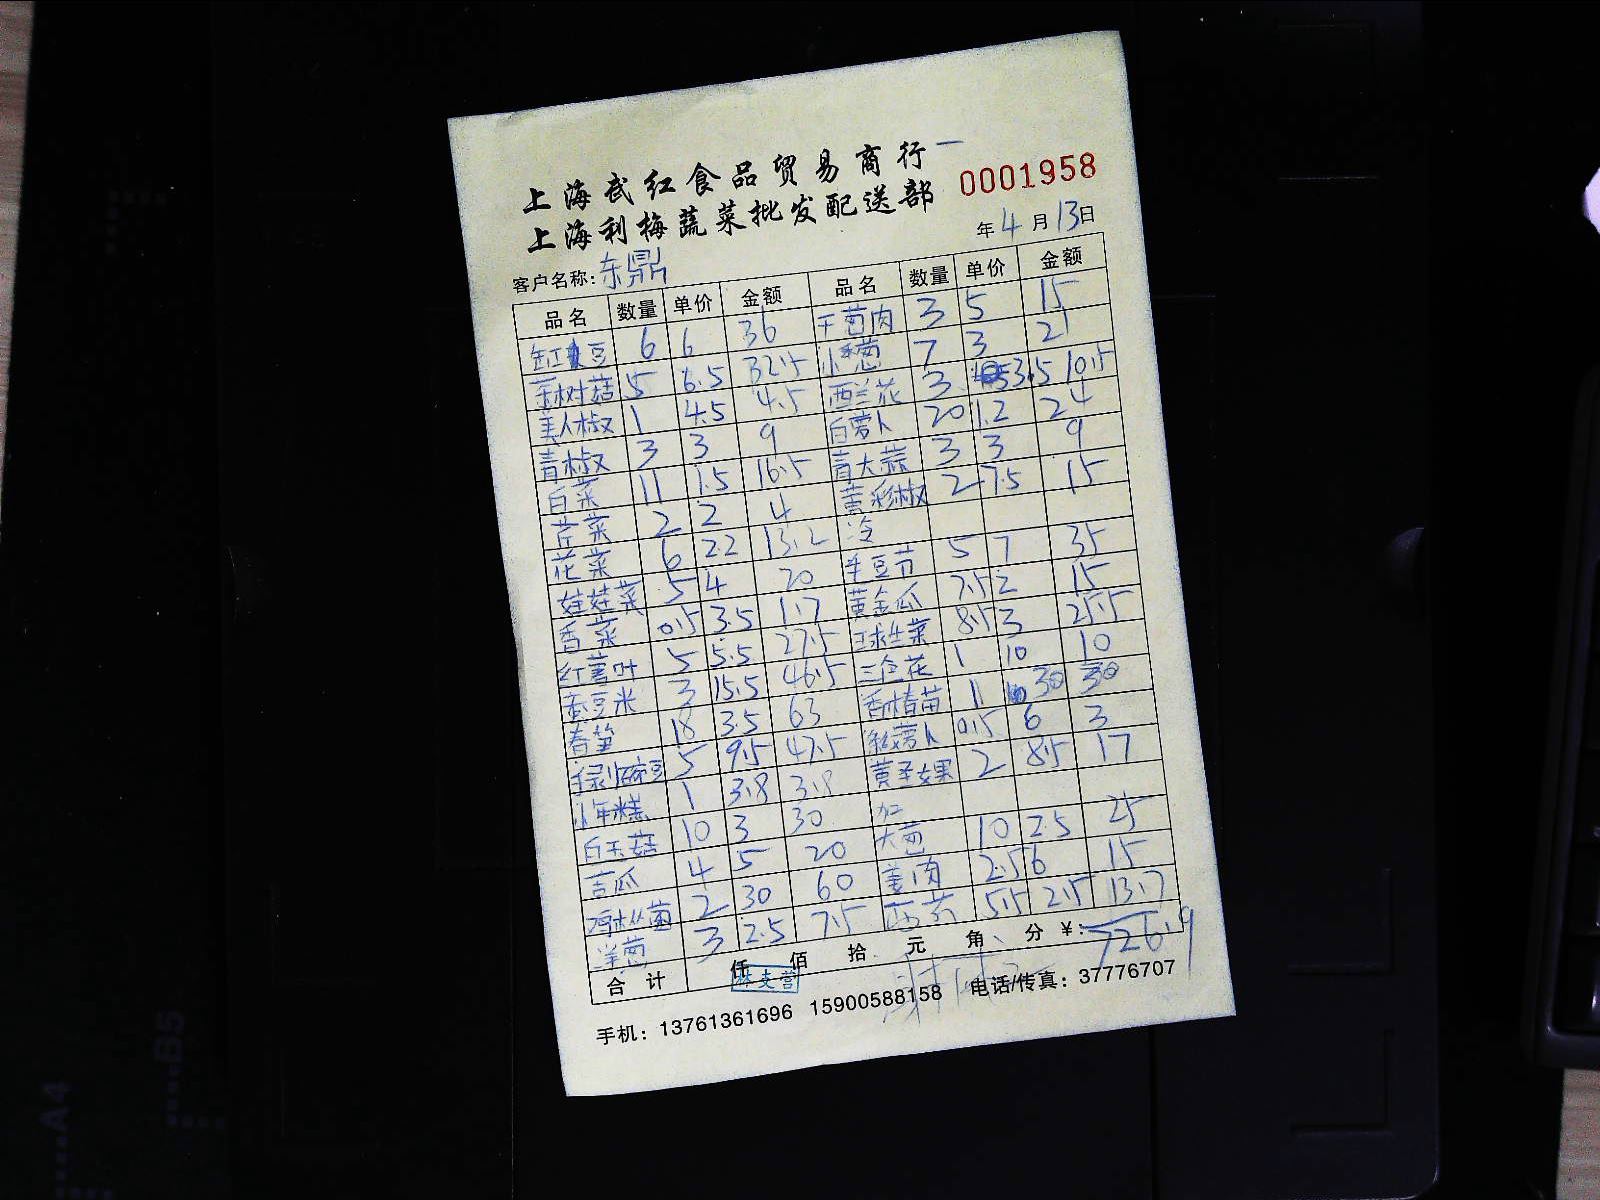 上海武红食品贸易商行
上海利梅蔬菜批发配送部
0001958
年4月13日
客户名称:东鼎
品名 数量 单价 金额 品名 数量 单价 金额
豇豆 6 6 36 干葱肉 3 5 15
茶树菇 5 6.5 32.5 小香葱 7 3 21
美人椒 1 4.5 4.5 西兰花 3 3.5 10.5
青椒 3 3 9 白萝卜 20 1.2 24
白菜 11 1.5 16.5 青大蒜 3 3 9
芹菜 2 2 4 黄彩椒 2 7.5 15
花菜 6 2.2 13.2 冷
娃娃菜 5 4 20 毛豆节 5 7 35
香菜 0.5 3.5 1.7 黄金瓜 7.5 2 15
红薯叶 5 5.5 27.5 球生菜 8.5 3 25.5
蚕豆米 3 15.5 46.5 三色花 1 10 10
春笋 18 3.5 63 香椿苗 1 30 30
绿小碗豆 5 9.5 47.5 萝卜 0.5 6 3
小年糕 1 3.8 3.8 黄圣女果 2 8.5 17
白玉菇 10 3 30 加
苦瓜 4 5 20 大葱 10 2.5 25
鸡枞菌 2 30 60 姜肉 2.5 6 15
洋葱 3 2.5 7.5 西芹 5.5 2.5 13.7
合计 仟 佰 拾 元 角 分 ¥: 726.9
林支营
手机: 13761361696 15900588158 电话/传真: 37776707